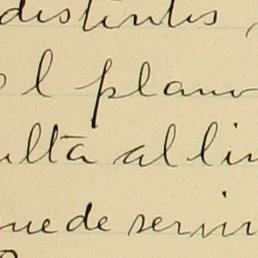 distintis
l plano
ulta al lin
uede servir